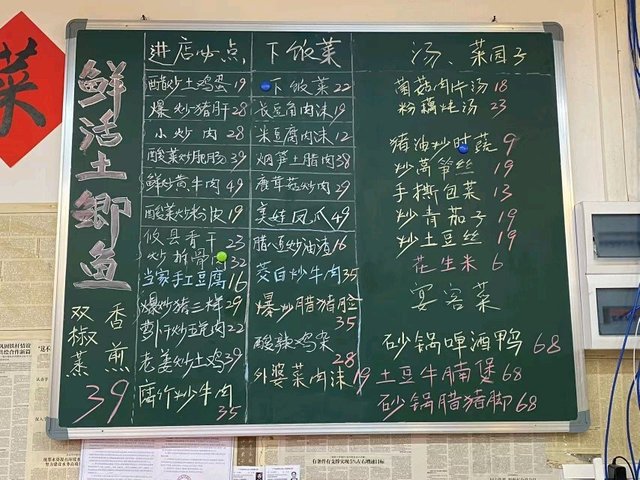 菜
鲜活土鲫鱼
双椒蒸
香煎
39
进店必点
醋炒土鸡蛋 19
爆炒猪肝 28
小炒肉 28
酸菜炒肥肠 39
鲜炒黄牛肉 49
酸菜炒粉皮 19
攸县香干 23
炒拆骨肉 32
当家手工豆腐 16
爆炒猪三样 29
萝卜干炒五花肉 22
老姜炒土鸡 39
腐竹炒牛肉 35
下饭菜
下饭菜 22
长豆角肉沫 19
米豆腐肉沫 12
烟笋土腊肉 38
鹿茸菇炒肉 29
美娃凤爪 49
腊八豆炒油渣 16
茭白炒牛肉 35
爆炒腊猪脸
35
酸辣鸡杂
28
外婆菜肉沫 19
汤、菜园子
菌菇肉片汤 18
粉藕炖汤 23
猪油炒时蔬 9
炒莴笋丝 19
手撕包菜 13
炒青茄子 19
炒土豆丝 19
花生米 6
宴客菜
砂锅啤酒鸭 68
土豆牛腩煲 68
砂锅腊猪脚 68